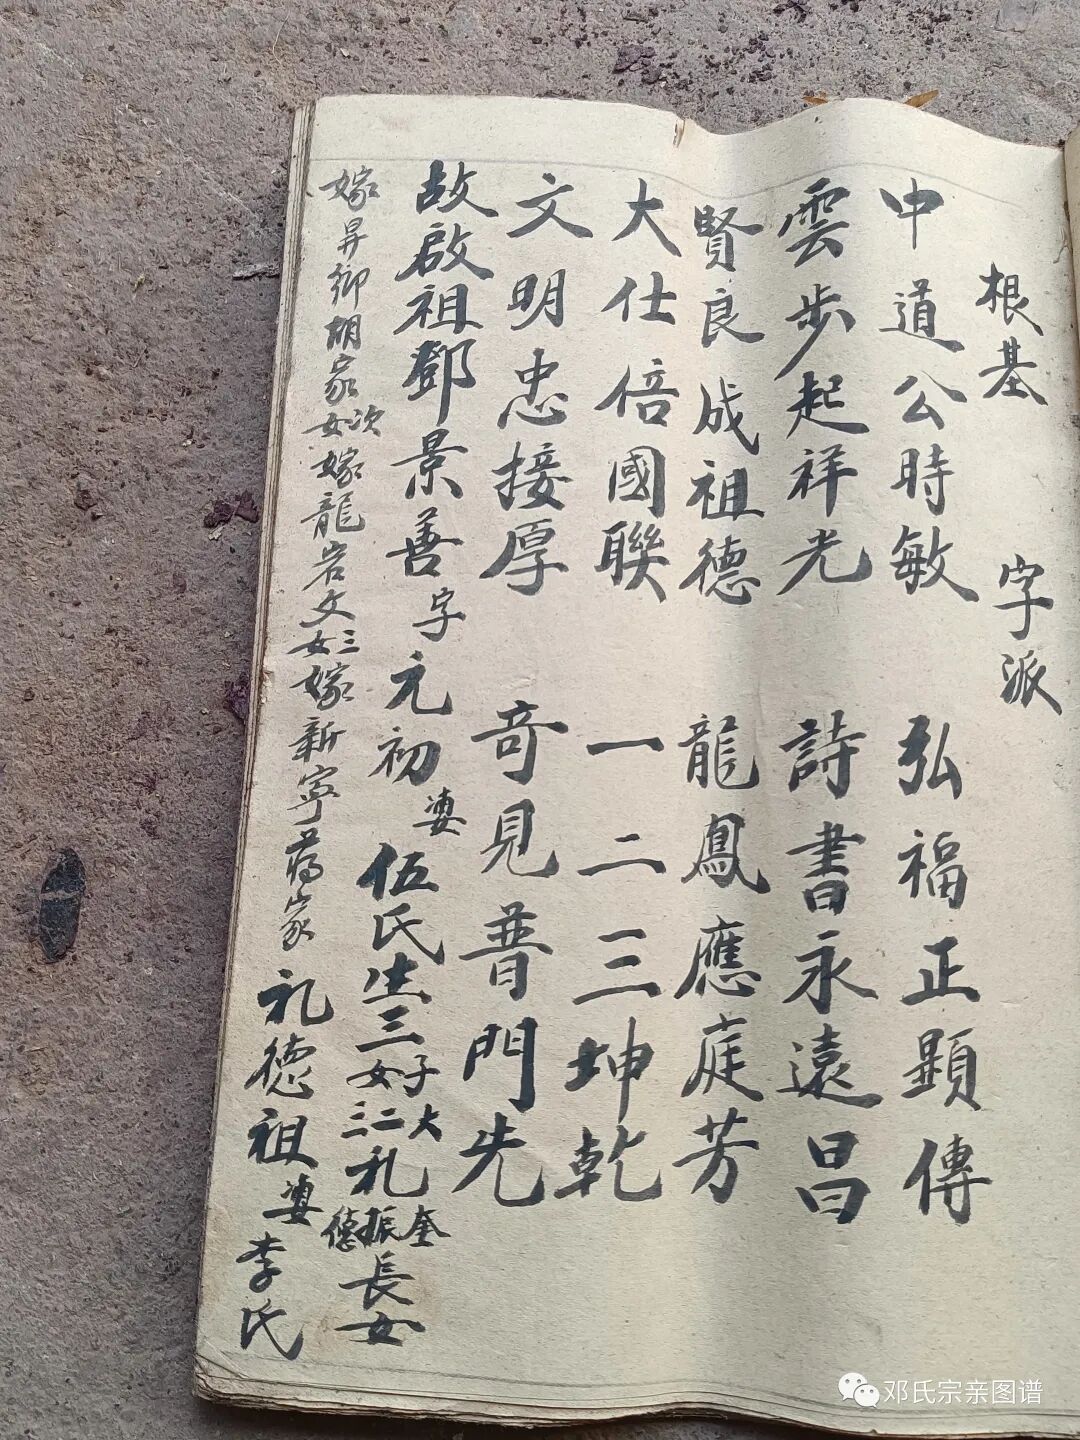 根基 字派
中道公時敏 弘福正顯傳
雲步起祥光 詩書永遠昌
賢良成祖德 龍鳳應庭芳
大仕倍國聯 一二三坤乾
文明忠接厚 奇見普門先
故啟祖鄧景善字元初 妻伍氏生三子女三 大二好礼奎振德長女
嫁昇鄉胡家次女嫁龍岩文三女嫁新寧蒋家 礼德祖妻李氏
邓氏宗亲图谱